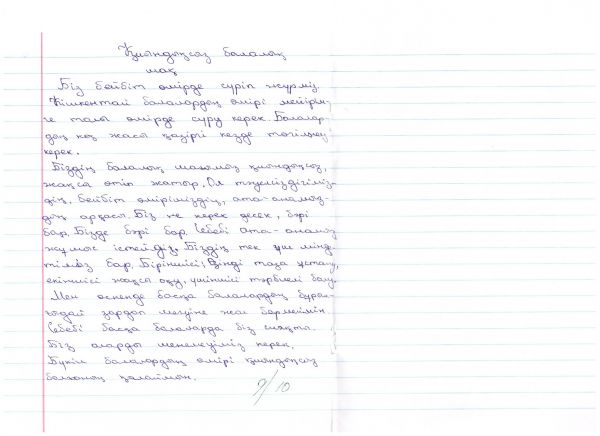 Қиындықсыз балалық
шақ
Біз бейбіт өмірде сүріп жүрміз.
Кішкентай балалардың өмірі мейірім-
ге толы өмірде сүру керек. Балалар-
дың көз жасы қазіргі кезде төгілмеу
керек.
Біздің балалық шағымыз қиындықсыз,
жақсы өтіп жатыр. Ол тәуелсіздігіміз-
дің, бейбіт өміріміздің, ата-анамыз-
дың арқасы. Біз не керек десек, бәрі
бар. Бізде бәрі бар. Себебі ата-анамыз
жұмыс істейді. Біздің тек үш мінде-
тіміз бар. Біріншісі; Үйді таза ұстану,
екіншісі жақсы оқу, үшіншісі тәрбиелі болу.
Мен өскенде басқа балалардың бұрын-
ғыдай зардап шегуіне жол бермеймін.
Себебі басқа балаларда біз сияқты.
Біз оларды меңкеуіміз керек.
Бүкіл балалардың өмірі қиындықсыз
болғанын қалаймын.
9/10